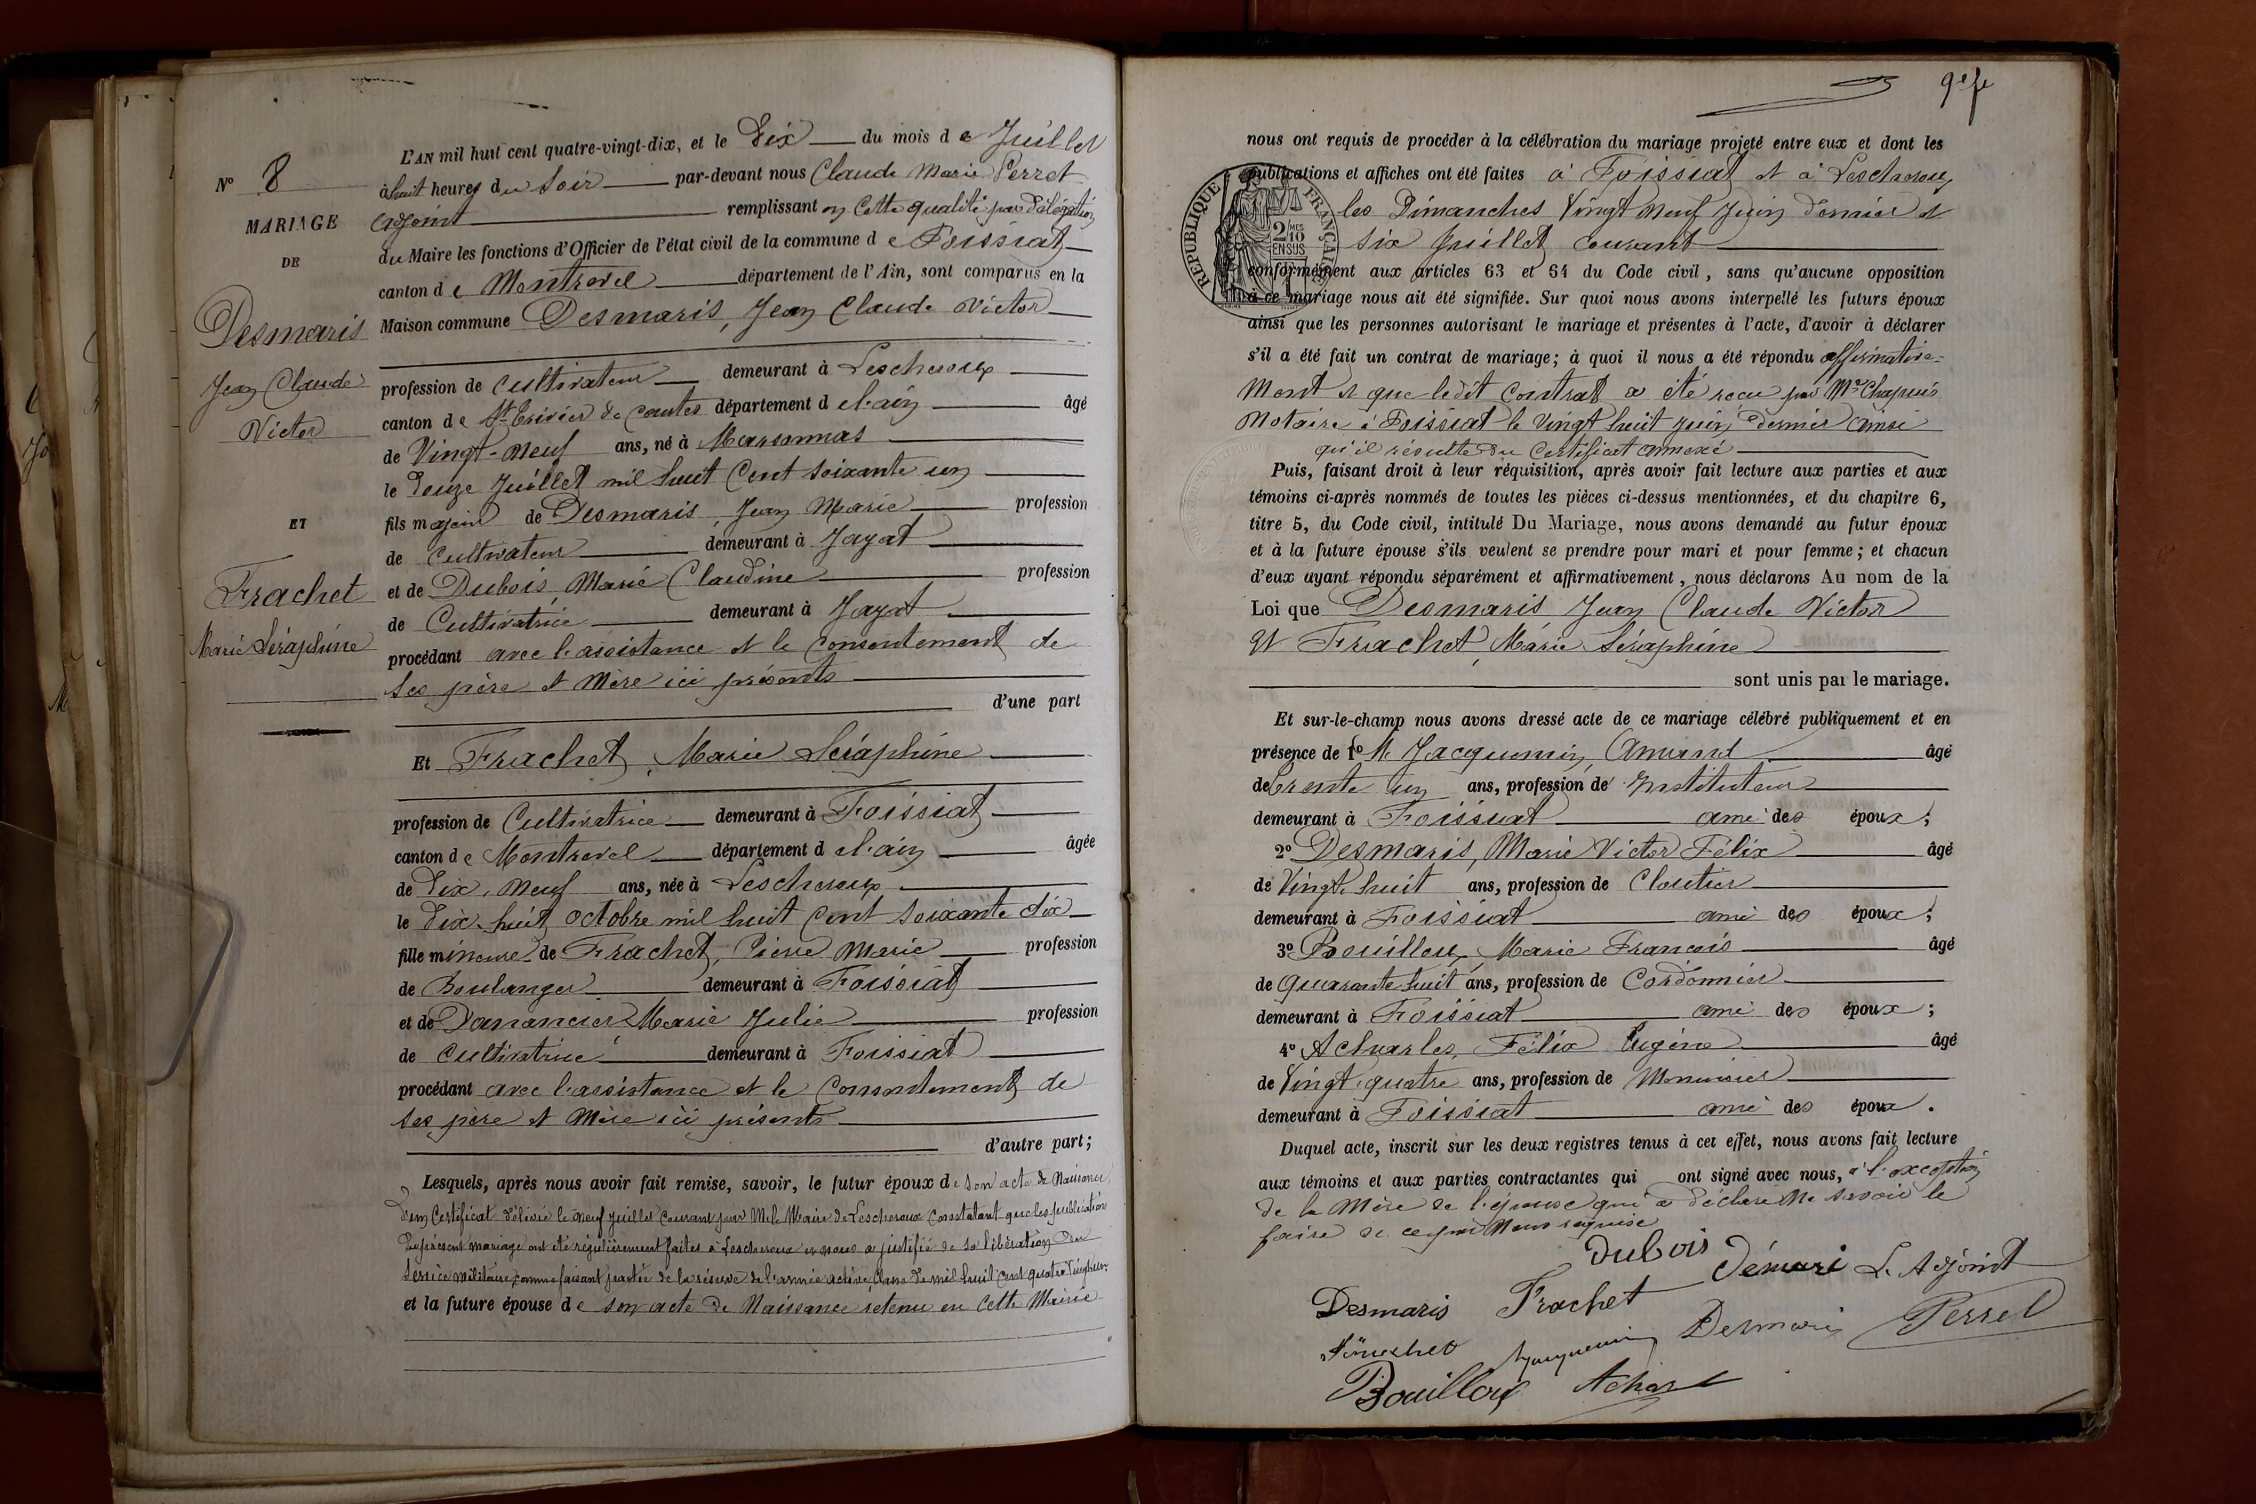 N° 8
MARIAGE
DE
Desmaris
Jean Claude
Victor
ET
Frachet
Marie Séraphine
L'AN mil huit cent quatre-vingt-dix, et le Dix du mois de Juillet
à huit heures du Soir par-devant nous Claude Marie Perret
adjoint remplissant en cette qualité par délégation
du Maire les fonctions d'Officier de l'état civil de la commune de Foissiat
canton de Montrevel département de l'Ain, sont comparus en la
Maison commune Desmaris, Jean Claude Victor
profession de Cultivateur demeurant à Lescheroux
canton de St Trivier de Courtes département de l'ain âgé
de Vingt-neuf ans, né à Marsonnas
le Douze Juillet mil huit Cent soixante un
fils majeur de Desmaris Jean Marie profession
de Cultivateur demeurant à Jayat
et de Dubois Marie Claudine profession
de Cultivatrice demeurant à Jayat
procédant avec l'assistance et le Consentement de
ses père et Mère ici présents
d'une part
Et Frachet, Marie Séraphine
profession de Cultivatrice demeurant à Foissiat
canton de Montrevel département de l'ain âgée
de Dix-Neuf ans, née à Lescheroux
le Dix-huit octobre mil huit Cent soixante dix
fille mineure de Frachet, Pierre Marie profession
de Boulanger demeurant à Foissiat
et de Danancier Marie Julie profession
de Cultivatrice demeurant à Foissiat
procédant avec l'assistance et le Consentement de
ses père et Mère ici présents
d'autre part;
Lesquels, après nous avoir fait remise, savoir, le futur époux de son acte de Naissance
d'un Certificat délivré le neuf juillet Courant par Mr le Maire de Lescheroux Constatant que les publications
du présent mariage ont été régulièrement faites à Lescheroux et nous a justifié de sa libération du
Service militaire comme faisant partie de la réserve de l'armée active, Classe de mil huit Cent quatre Vingt un
et la future épouse de son acte de Naissance retenu en Cette Mairie
9e fe
nous ont requis de procéder à la célébration du mariage projeté entre eux et dont les
publications et affiches ont été faites à Foissiat et à Lescheroux
les Dimanches Vingt Neuf Juin dernier et
six Juillet courant
RÉPUBLIQUE FRANÇAISE
2/10MES
EN SUS
conformément aux articles 63 et 64 du Code civil, sans qu'aucune opposition
à ce mariage nous ait été signifiée. Sur quoi nous avons interpellé les futurs époux
ainsi que les personnes autorisant le mariage et présentes à l'acte, d'avoir à déclarer
s'il a été fait un contrat de mariage; à quoi il nous a été répondu affirmative-
ment et que ledit Contrat a été reçu par Me Chapuis
Notaire à Foissiat le Vingt huit Juin Dernier ainsi
qu'il résulte du Certificat annexé
Puis, faisant droit à leur réquisition, après avoir fait lecture aux parties et aux
témoins ci-après nommés de toutes les pièces ci-dessus mentionnées, et du chapitre 6,
titre 5, du Code civil, intitulé Du Mariage, nous avons demandé au futur époux
et à la future épouse s'ils veulent se prendre pour mari et pour femme; et chacun
d'eux ayant répondu séparément et affirmativement, nous déclarons Au nom de la
Loi que Desmaris Jean Claude Victor
et Frachet, Marie Séraphine
sont unis par le mariage.
Et sur-le-champ nous avons dressé acte de ce mariage célébré publiquement et en
présence de 1° M. Jacquemin, Amand âgé
de trente un ans, profession de Instituteur
demeurant à Foissiat ami des époux;
2° Desmaris, Marie Victor Félix âgé
de Vingt-huit ans, profession de Cloutier
demeurant à Foissiat ami des époux;
3° Bouilloux, Marie François âgé
de Quarante huit ans, profession de Cordonnier
demeurant à Foissiat ami des époux;
4° Acharles, Félix Eugène âgé
de Vingt-quatre ans, profession de Menuisier
demeurant à Foissiat ami des époux.
Duquel acte, inscrit sur les deux registres tenus à cet effet, nous avons fait lecture
aux témoins et aux parties contractantes qui ont signé avec nous, à l'exception
de la Mère de l'épouse qui a déclaré ne savoir le
faire de ce par Nous requise
Dubois Démari L. Adjoint
Desmaris Frachet
Desmaris Perret
Jacquemin
Bouilloux Achar